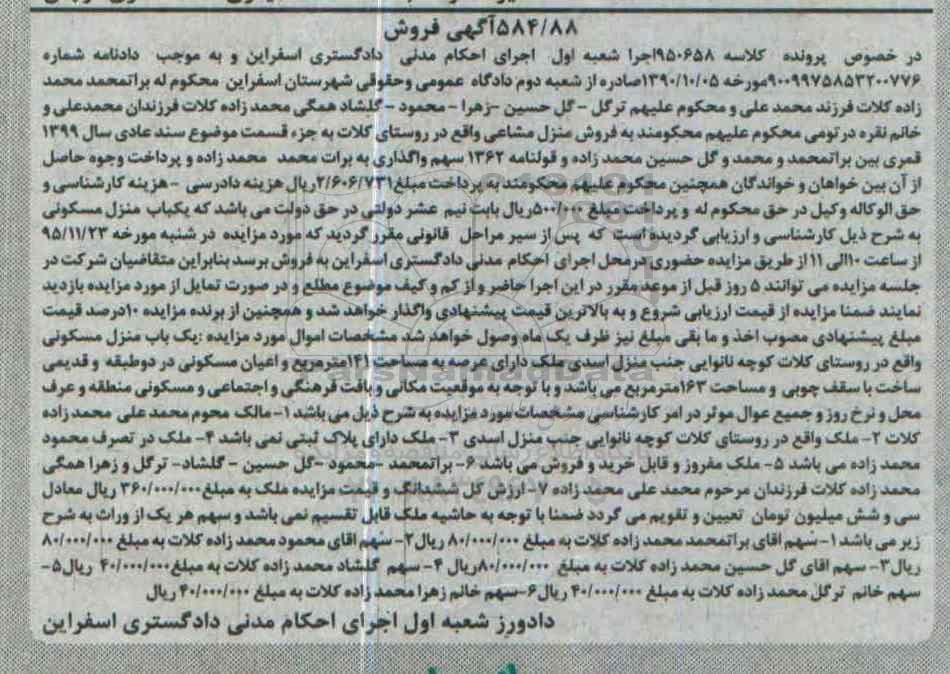 ۵۸۴/۸۸آگهی فروش
در خصوص پرونده کلاسه ۹۵۰۶۵۸اجرا شعبه اول اجرای احکام مدنی دادگستری اسفراین و به موجب دادنامه شماره
۹۰۰۹۹۷۵۸۵۳۲۰۰۷۷۶مورخه ۱۳۹۰/۱۰/۰۵صادره از شعبه دوم دادگاه عمومی وحقوقی شهرستان اسفراین محکوم له براتمحمد محمد
زاده کلات فرزند محمد علی و محکوم علیهم ترگل - گل حسین -زهرا - محمود - گلشاد همگی محمد زاده کلات فرزندان محمدعلی و
خانم نقره درتومی محکوم علیهم محکومند به فروش منزل مشاعی واقع در روستای کلات به جزء قسمت موضوع سند عادی سال ۱۳۹۹
قمری بین براتمحمد و محمد و گل حسین محمد زاده و قولنامه ۱۳۶۲ سهم واگذاری به برات محمد محمد زاده و پرداخت وجوه حاصل
از آن بین خواهان و خواندگان همچنین محکوم علیهم محکومند به پرداخت مبلغ ۲/۶۰۶/۷۳۱ریال هزینه دادرسی -هزینه کارشناسی و
حق الوکاله وکیل در حق محکوم له و پرداخت مبلغ ۵۰۰/۰۰۰ریال بابت نیم عشر دولتی در حق دولت می باشد که یکباب منزل مسکونی
به شرح ذیل کارشناسی و ارزیابی گردیده است که پس از سیر مراحل قانونی مقرر گردید که مورد مزایده در شنبه مورخه ۹۵/۱۱/۲۳
از ساعت ۱۰الی ۱۱ از طریق مزایده حضوری درمحل اجرای احکام مدنی دادگستری اسفراین به فروش برسد بنابراین متقاضیان شرکت در
جلسه مزایده می توانند ۵ روز قبل از موعد مقرر در این اجرا حاضر و از کم و کیف موضوع مطلع و در صورت تمایل از مورد مزایده بازدید
نمایند ضمنا مزایده از قیمت ارزیابی شروع و به بالاترین قیمت پیشنهادی واگذار خواهد شد و همچنین از برنده مزایده ۱۰درصد قیمت
مبلغ پیشنهادی مصوب اخذ و ما بقی مبلغ نیز ظرف یک ماه وصول خواهد شد مشخصات اموال مورد مزایده :یک باب منزل مسکونی
واقع در روستای کلات کوچه نانوایی جنب منزل اسدی ملک دارای عرصه به مساحت ۱۴۱مترمربع و اعیان مسکونی در دوطبقه و قدیمی
ساخت با سقف چوبی و مساحت ۱۶۳مترمربع می باشد و با توجه به موقعیت مکانی و بافت فرهنگی و اجتماعی و مسکونی منطقه و عرف
محل و نرخ روز و جمیع عوال موثر در امر کارشناسی مشخصات مورد مزایده به شرح ذیل می باشد ۱- مالک محوم محمد علی محمد زاده
کلات ۲- ملک واقع در روستای کلات کوچه نانوایی جنب منزل اسدی ۳- ملک دارای پلاک ثبتی نمی باشد ۴- ملک در تصرف محمود
محمد زاده می باشد ۵- ملک مفروز و قابل خرید و فروش می باشد ۶- براتمحمد -محمود -گل حسین - گلشاد- ترگل و زهرا همگی
محمد زاده کلات فرزندان مرحوم محمد علی محمد زاده ۷- ارزش کل ششدانگ و قیمت مزایده ملک به مبلغ۳۶۰/۰۰۰/۰۰۰ ریال معادل
سی و شش میلیون تومان تعیین و تقویم می گردد ضمنا با توجه به حاشیه ملک قابل تقسیم نمی باشد و سهم هر یک از وراث به شرح
زیر می باشد ۱- سهم اقای براتمحمد محمد زاده کلات به مبلغ ۸۰/۰۰۰/۰۰۰ ریال ۲- سهم اقای محمود محمد زاده کلات به مبلغ ۸۰/۰۰۰/۰۰۰
ریال ۳- سهم اقای گل حسین محمد زاده کلات به مبلغ ۸۰/۰۰۰/۰۰۰ریال ۴- سهم گلشاد محمد زاده کلات به مبلغ ۴۰/۰۰۰/۰۰۰ ریال ۵-
سهم خانم ترگل محمد زاده کلات به مبلغ ۴۰/۰۰۰/۰۰۰ ریال ۶-سهم خانم زهرا محمد زاده کلات به مبلغ ۴۰/۰۰۰/۰۰۰ریال
دادورز شعبه اول اجرای احکام مدنی دادگستری اسفراین